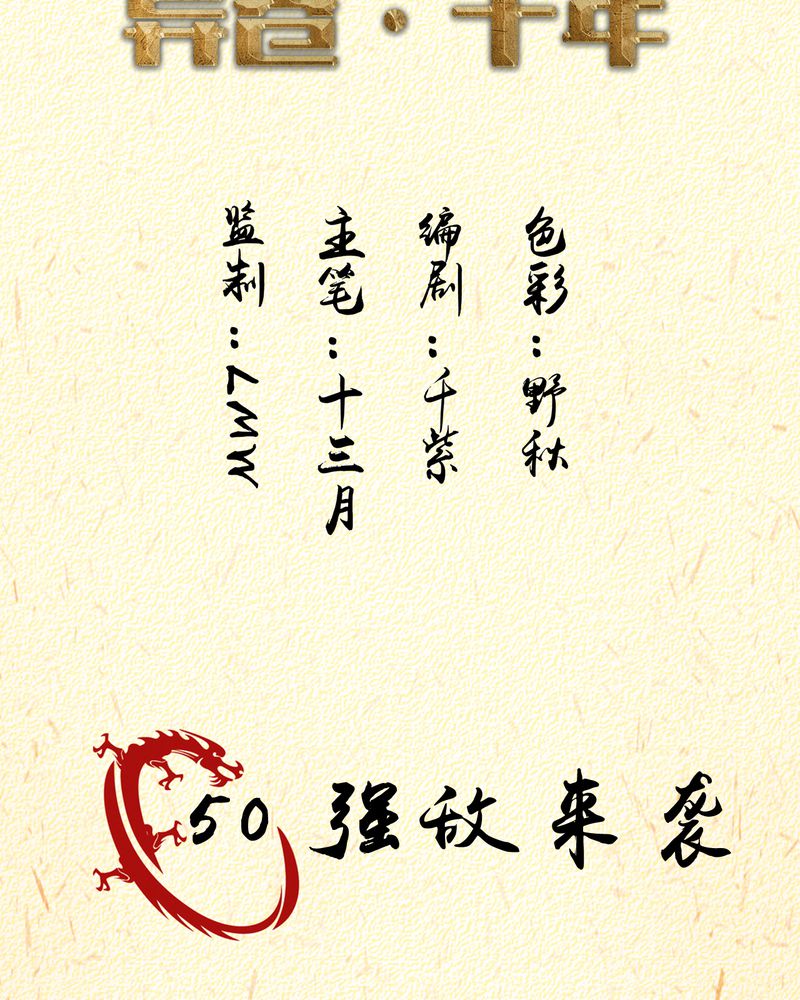 ·千年
色彩：野秋
编剧：千紫
主笔：十三月
监制：7MMW
50 强敌来袭